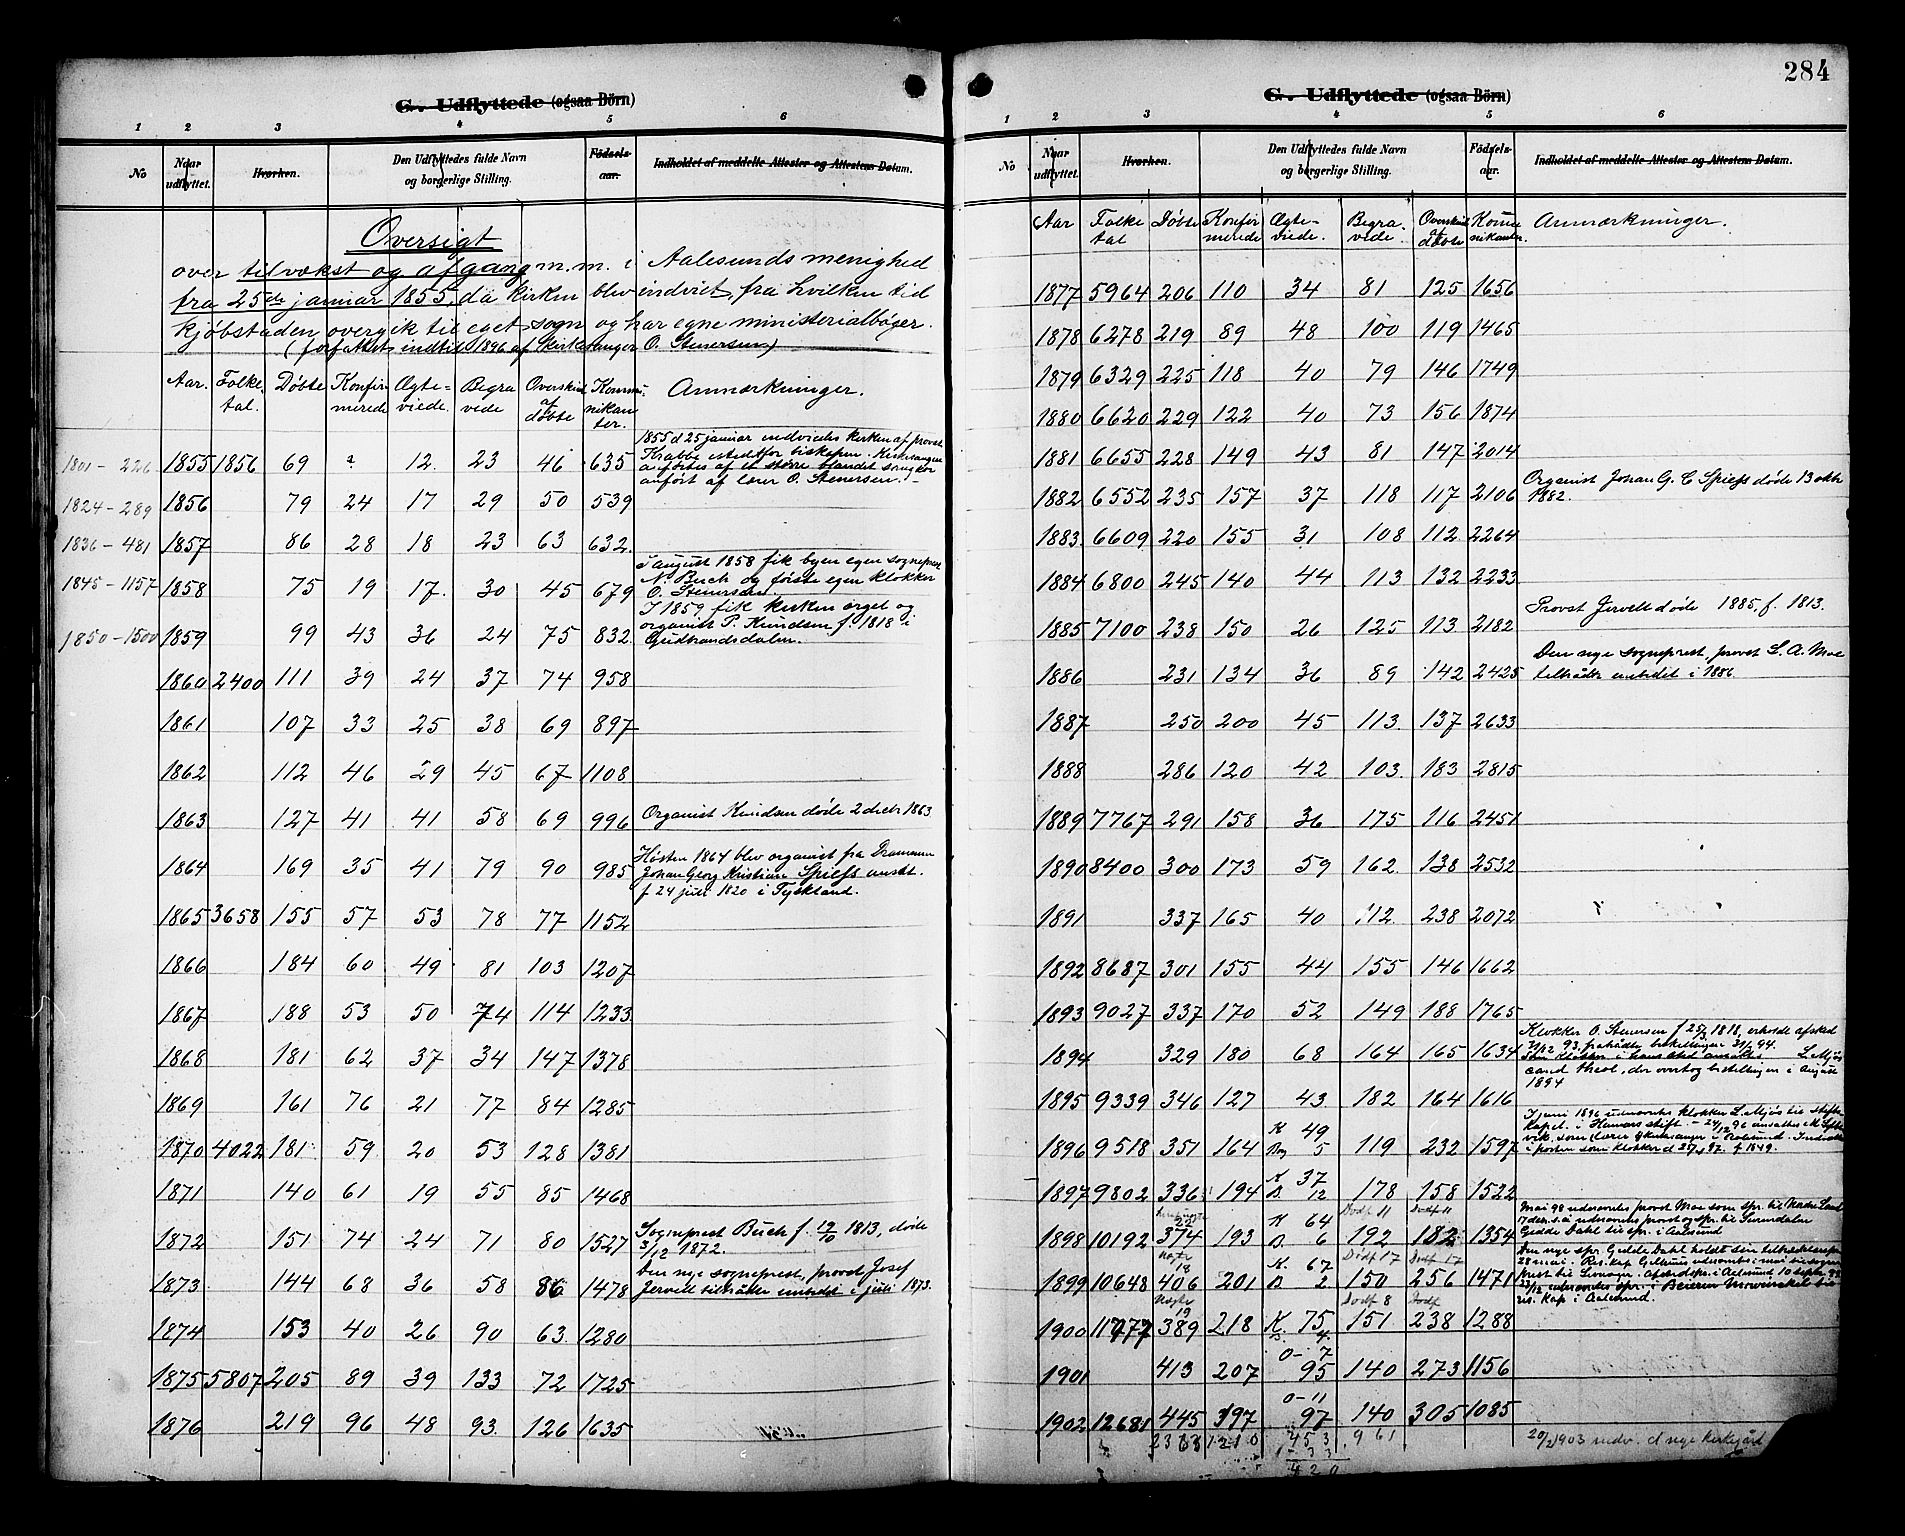 G. Udflyttede (ogsaa Börn)
1 2 3 4 5 6
No Naar udflyttet. Hvorhen. Den Udflyttedes fulde Navn og borgerlige Stilling. Födsels-aar. Indholdet af meddelte Attester og Attestens Datum.
Oversigt
over tilvækst og afgang m.m. i Aalesunds menighed
fra 25de januar 1855, da kirken blev indviet, fra hvilken tid
kjøbstaden overgik til eget sogn og har egne ministerialbøger.
(forfattet indtil 1896 af kirkesanger O. Stenersen)
Aar. Folketal. Døbte Konfirmerede Ægteviede. Begravede Overskud af døbte Kommunikanter. Anmærkninger.
1855 d 25 januar indviedes kirken af provst
Krabbe istedtfor biskopen. Kirkesangen
anførtes af et større blandet sangkor
anført af lærer O. Stenersen.
1801 - 226 1855 1856 69 ? 12. 23 46 635
1824 - 289 1856 79 24 17 29 50 539
1836 - 481 1857 86 28 18 23 63 632.
I august 1858 fik byen egen sogneprest
N. Buch og første egen klokker
O. Stenersen.
1845 - 1157 1858 75 19 17. 30 45 679
I 1859 fik kirken orgel og
organist P. Knudsen f. 1818 i
Gudbrandsdalen.
1850 - 1500 1859 99 43 36 24 75 832.
1860 2400 111 39 24 37 74 958
1861 107 33 25 38 69 897
1862 112 46 29 45 67 1108
1863 127 41 41 58 69 996 Organist Knudsen døde 2 decbr 1863.
1864 169 35 41 79 90 985 Høsten 1864 blev organist fra Drammen
Johan Georg Kristian Spiess ansat.
f 24 juli 1820 i Tyskland.
1865 3658 155 57 53 78 77 1152
1866 184 60 49 81 103 1207
1867 188 53 50 74 114 1233
1868 181 62 37 34 147 1378
1869 161 76 21 77 84 1285
1870 4022 181 59 20 53 128 1381
1871 140 61 19 55 85 1468
1872 151 74 24 71 80 1527 Sogneprest Buch f. 19/10 1813, døde
3/12 1872.
1873 144 68 36 58 86 1478 Den nye sogneprest, provst Josef
Jervell tiltrådte embedet i juli 1873.
1874 153 40 26 90 63. 1280
1875 5807 205 89 39 133 72 1725
1876 219 96 48 93. 126 1635
284
G. Udflyttede (ogsaa Börn)
1 2 3 4 5 6
No Naar udflyttet. Hvorhen. Den Udflyttedes fulde Navn og borgerlige Stilling. Födsels-aar. Indholdet af meddelte Attester og Attestens Datum.
Aar Folketal Døbte Konfirmerede Ægteviede. Begravede. Overskud af døbte Kommunikanter. Anmærkninger.
1877 5964 206 110 34 81 125 1656
1878 6278 219 89 48 100 119 1465
1879 6329 225 118 40 79 146 1749
1880 6620 229 122 40 73 156 1874
1881 6655 228 149 43 81 147 2014
1882 6552 235 157 37 118 117 2106 Organist Johan G. C Spiess døde 13 oktr
1882.
1883. 6609 220 155 31 108 112. 2264
1884 6800 245 140 44 113 132 2233
1885 7100 238 150 26 125 113 2182 Provst Jervell døde 1885, f. 1813.
1886 231 134 36 89 142 2425 Den nye sogneprest, provst S. A. Moe
tiltrådte embedet i 1886.
1887 250 200 45 113. 137 2633
1888 286 120 42 103. 183 2815
1889 7767 291 158 36 175 116 2451
1890 8400 300 173 59 162. 138 2532
1891 337 165 40 112 238 2072
1892 8687 301 155 44 155 146 1662
1893 9027 337 170 52 149 188 1765
Klokker O. Stenersen f 25/3 1818, erholdt afsked
31/12 93, fratrådte bestillingen 31/7 94.
Som klokker i hans sted ansattes L. Mjøs
cand theol, der overtog bestillingen i August
1894
1894 329 180 68 164 165 1634
1895 9339 346 127 43 182 164 1616
I juni 1896 udnævntes klokker L. Mjøs til stifts-
kapel. i Hamars stift. - 24/12 96 ansattes
som lærer & kirkesanger i Aalesund.
i posten som klokker f 1849.
1896 9518 351 164 K 49 5 119 232 1597
1897 9802 336 194 K 37 D. 12 178 158 1522
Dødf 11 Dødf 11
1898 10192 22 374 193 K 64 D. 6 192 182 1354
Mai 98 udnævntes provst Moe som spr. til Nedre
17 des. s.a. udnævntes provst og spr. til Surendalen
Gedde Dahl til spr. i Aalesund
Nøgte 18 Dødf 17 Dødf 17
1899 10648 406 201 K. 67 D 2 150 256 1471
Den nye spr. Gedde Dahl holdt sin tiltrædelsespr
28 mai. Res. kap udnævntes i mai til sogne
prest til afskedspr. i Aalesund 10 septr 99
udnævntes spr. i Beieren
res. kap i Aalesund.
Nøgte 19 Dødf 8 Dødf
1900 11777 389 218 K 75 4. 151 238 1288
1901 413 207 0- 7 95 140 273 1156
1902 12681 445 197 0- 11 97 140 305 1085
2368 1210 453 961
33
420
20/2 1903 indv. d nye kirkegård